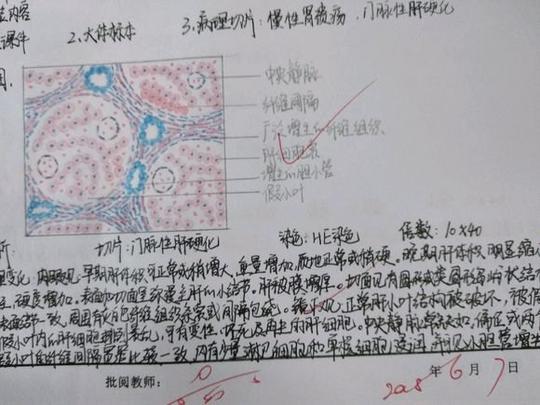 内容
课件 2.大体标本 3.病理切片：慢性胃溃疡、门脉性肝硬化
中央静脉
纤维间隔
广泛增生的纤维组织
肝细胞
增生的胆小管
假小叶
切片：门脉性肝硬化 染色：HE染色 倍数：10×40
变化 肉眼见：早期肝体积可正常或稍增大，重量增加，质地正常或稍硬。晚期肝体积明显缩小
硬度增加。表面和切面呈弥漫全肝的小结节，肝被膜增厚。切面见有圆形或类圆形岛屿状结
一致，周围有灰白纤维组织条索或间隔包绕。镜下见：正常肝小叶结构被破坏，被假
小叶内的肝细胞排列紊乱，可有变性、坏死及再生的肝细胞。中央静脉常缺如，偏位或两个
小叶的纤维间隔宽窄比较一致，内有少量淋巴细胞和单核细胞浸润，并可见小胆管增生
批阅教师： 年 6 月 7 日